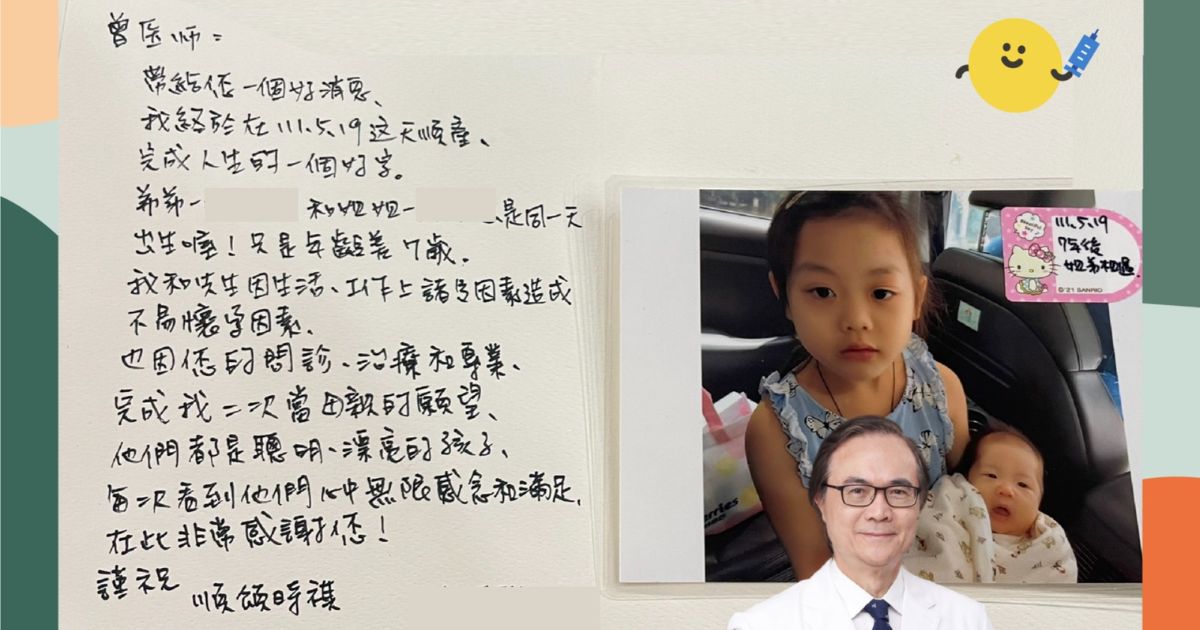 曾医师：
帶給您一個好消息、
我終於在111.5.19这天順產、
完成人生的一個好字。
弟弟- 和姐姐- 、是同一天
出生喔！只是年齡差7歲.
我和先生因生活、工作上諸多因素造成
不易懷孕因素.
也因您的問診、治療和專業、
完成我二次當母親的願望、
他們都是聰明、漂亮的孩子、
每次看到他們心中無限感念和滿足.
在此非常感謝您！
謹祝
順頌時祺
Beautiful
Day
111.5.19
7年後
姐弟相遇.
©'21 SANRIO
erries